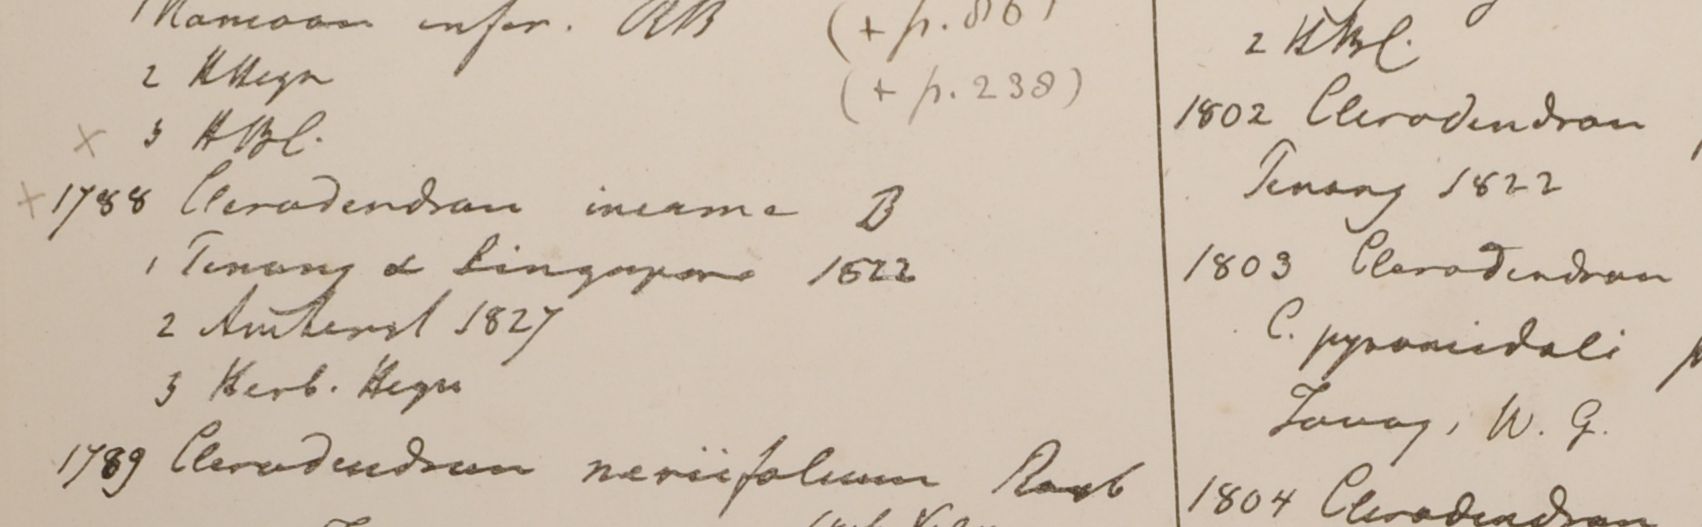 infer. RB (+ p.
2 HHeyn (+ p. 238)
x 3 HBC.
+ 1788 Clerodendron inerme B
1 Penang & Singapore 1822
2 Amherst 1827
3 Herb. Heyn
1789 Clerodendron neriifolium Roxb
2 HBC.
1802 Clerodendron
Penang 1822
1803 Clerodendron
C. pyramidali
Tavoy, W. G.
1804 Clerodendron